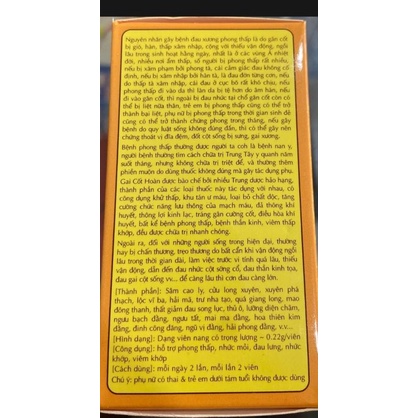 Nguyên nhân gây bệnh đau xương phong thấp là do gân cốt
bị gió, hàn, thấp xâm nhập, cộng với thiếu vận động, ngồi
lâu trong sinh hoạt hằng ngày, nhất là ở các vùng Á nhiệt
đới, nhiều nơi ẩm thấp, số người bị phong thấp rất nhiều,
nếu bị xâm phạm bởi phong tà, cái cảm giác đau không cố
định, nếu bị xâm nhập bởi hàn tà, là đau đớn từng cơn, nếu
do thấp tà xâm nhập, cái đau ở cục bộ rất khó chịu, nếu
phong thấp đi vào da thì làn da bị tê hơn do âm hàn, nếu
đi vào gân cốt, thì ngoài bị đau nhức tại chổ gân cốt còn có
thể bị liệt nửa thân, trẻ em bị phong thấp cũng có thể trở
thành bại liệt, phụ nữ bị phong thấp trong thời gian sinh đẻ
cũng có thể trở thành chứng phong trong tháng, nếu gây
bệnh do quy luật sống không đúng đắn, thì có thể gây nên
chứng thoát vị đĩa đệm, đốt cột sống bị sưng, gai sương.
Bệnh phong thấp thường được người ta coi là bệnh nan y,
người bệnh thường tìm cách chữa trị Trung Tây y quanh năm
suốt tháng, nhưng không chữa trị triệt để, và thường thêm
phiền muộn do dùng thuốc không đúng mà gây tác dụng phụ.
Gai Cốt Hoàn được bào chế bởi nhiều Trung dược hảo hạng,
thành phần của các loại thuốc này tác dụng với nhau, có
công dụng khử thấp, khu tán ư máu, loại bỏ chất độc, tăng
cường chức năng lưu thông của mạch máu, đả thông khí
huyết, thông lợi kinh lạc, tráng gân cường cốt, điều hòa khí
huyết, bất kể bệnh phong thấp, bệnh thần kinh, viêm thấp
khớp, đều được chữa trị nhanh chóng.
Ngoài ra, đối với những người sống trong hiện đại, thường
hay bị chấn thương, trẹo thương do bất cẩn khi vận động ngồi
lâu trong thời gian dài, làm việc trước vi tính quá lâu, thiếu
vận động, dẫn đến đau nhức cột sống cổ, đau thần kinh tọa,
đau gai cột sống vv... để càng lâu thì cơn đau càng lớn.
[Thành phần]: Sâm cao ly, cửu long xuyên, xuyên phá
thạch, lộc vĩ ba, hải mã, trư nha tạo, quá giang long, mao
đông thanh, thất giảm đau song lục, thù ô, lưỡng diện châm,
ngưu bạch đằng, ngưu tất, mai ma đằng, hoa thiên kim
đằng, đinh công đằng, ngũ vị đằng, hải phong đằng, v.v...
[Hình dạng]: Dạng viên nang có trọng lượng – 0.22g/viên
[Công dụng]: hỗ trợ phong thấp, nhức mỏi, đau lưng, nhức
khớp, viêm khớp
[Cách dùng]: mỗi ngày 2 lần, mỗi lần 2 viên
Chú ý: phụ nữ có thai & trẻ em dưới tám tuổi không được dùng